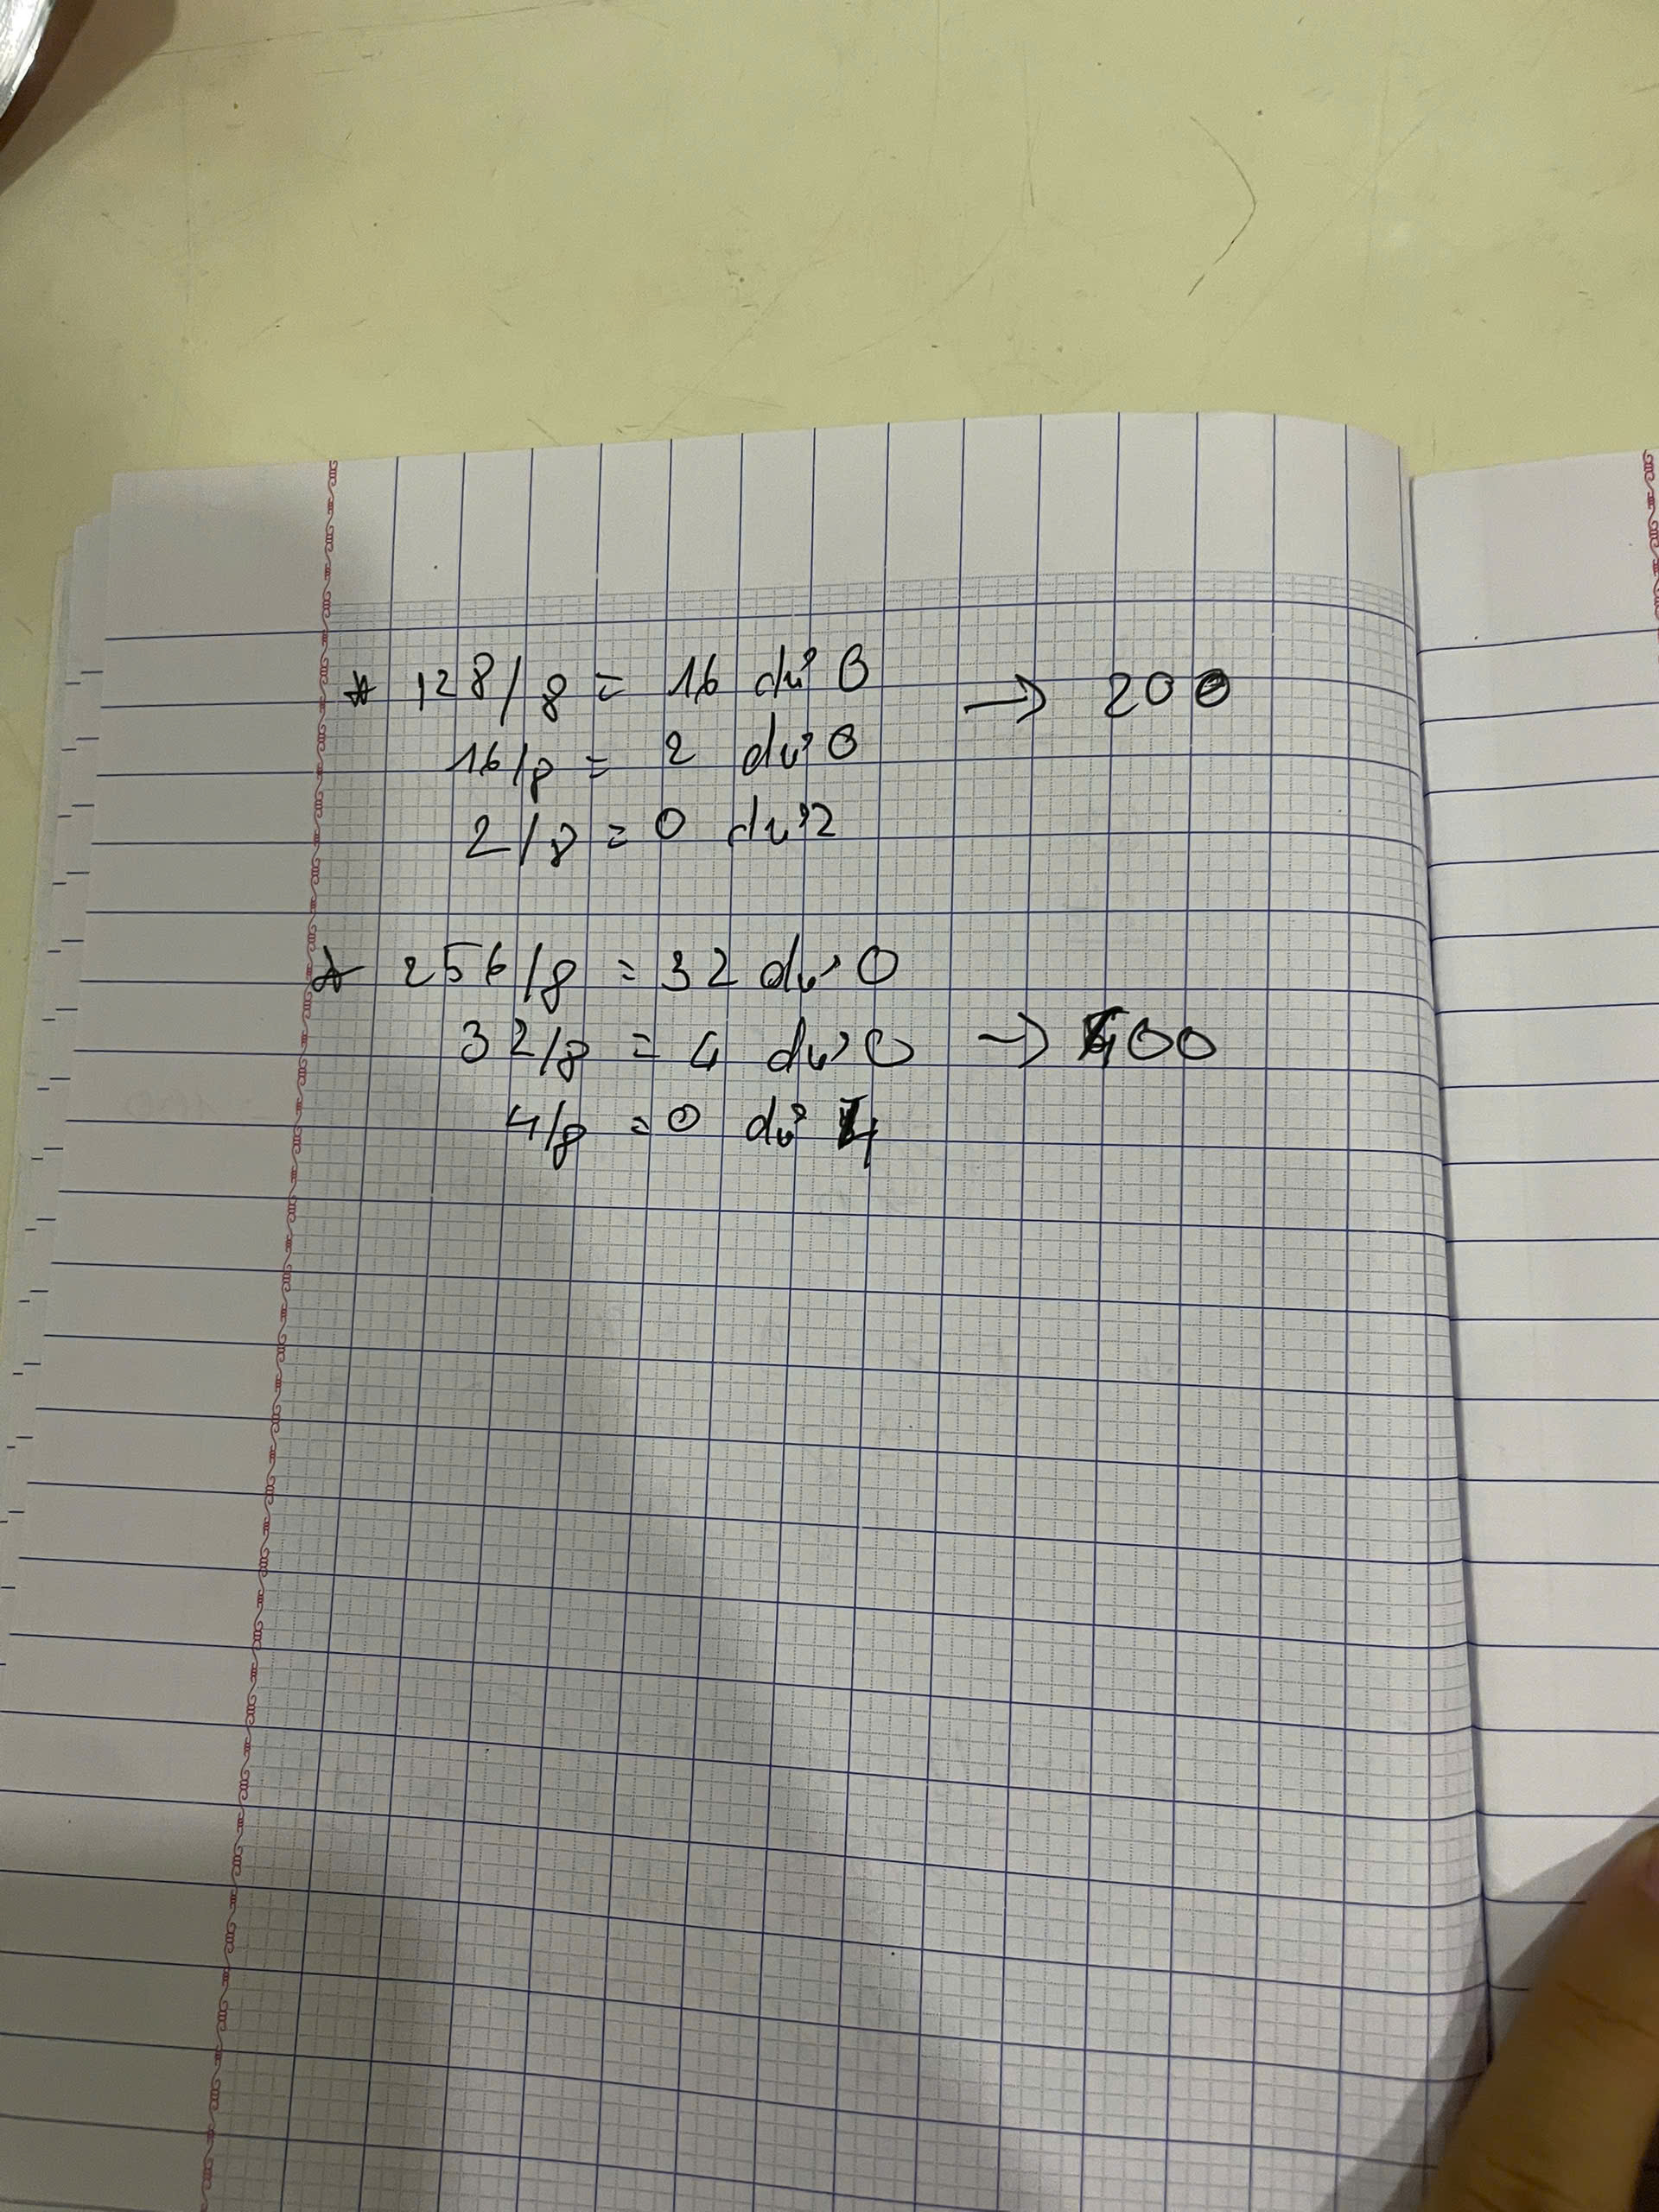 * 128/8 = 16 dư 0 → 200
16/8 = 2 dư 0
2/8 = 0 dư 2
* 256/8 = 32 dư 0
32/8 = 4 dư 0 → 400
4/8 = 0 dư 4